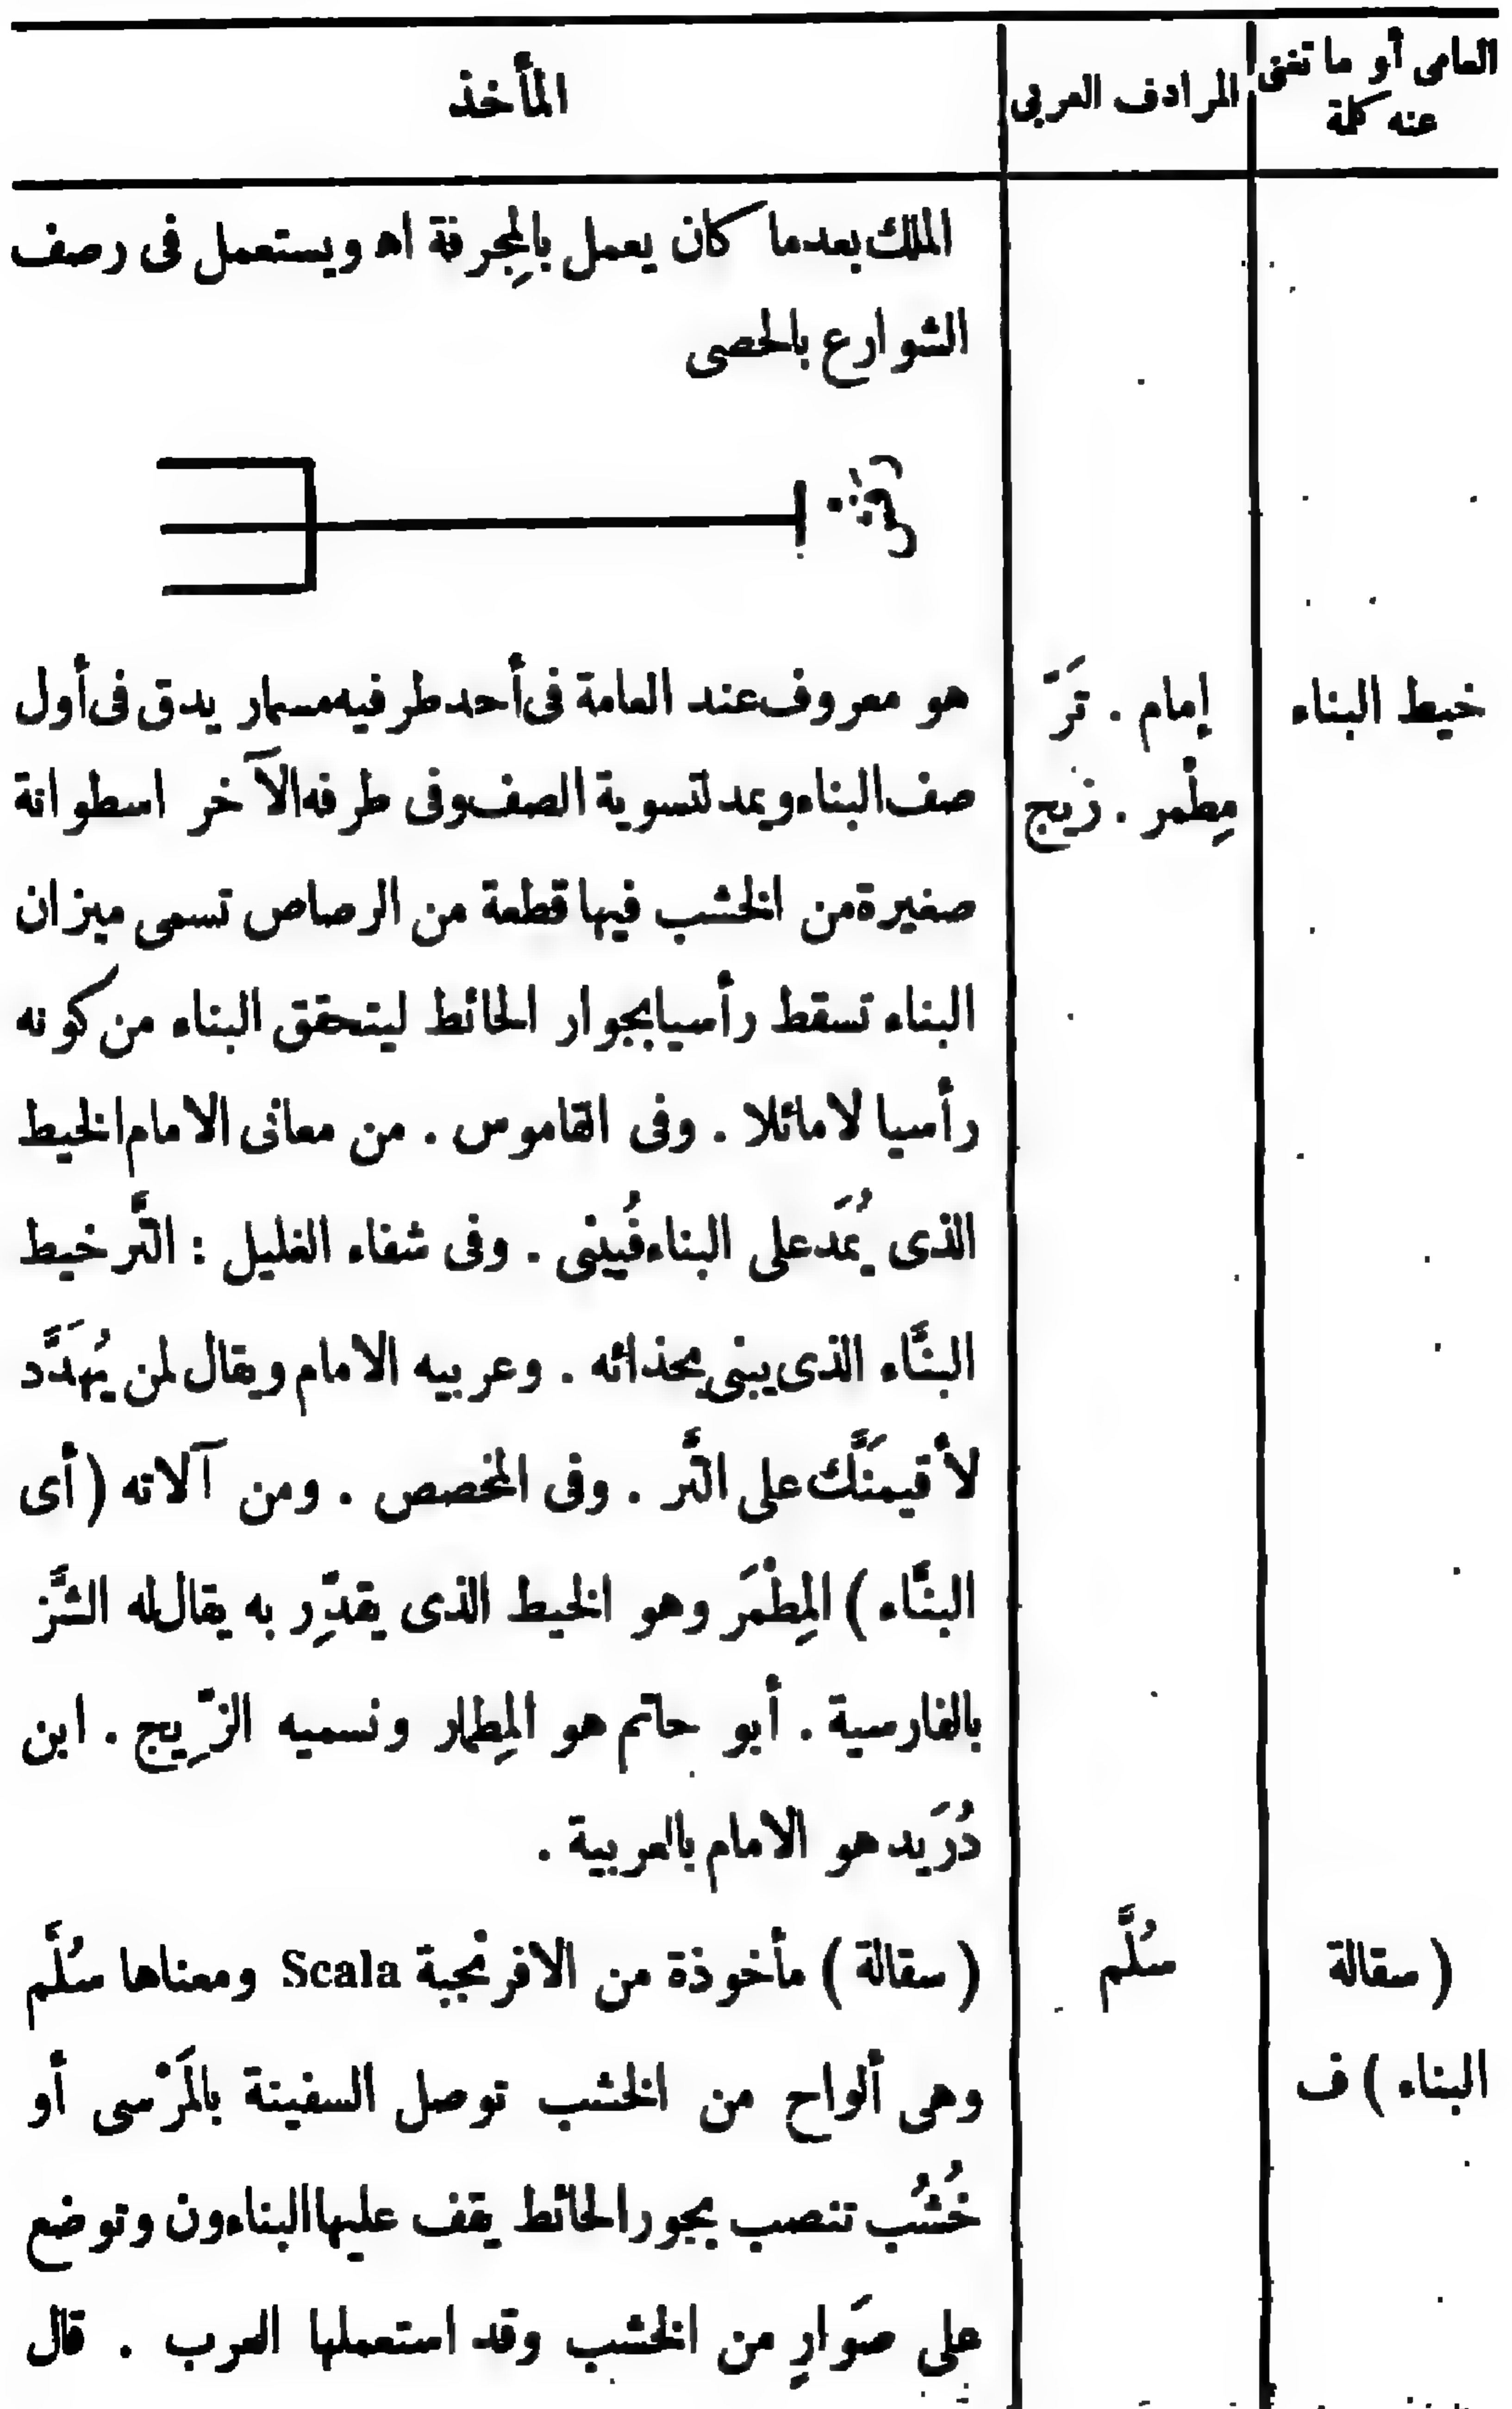 العامى أو ما تغنى
عنه كلمة
المرادف العربى
المأخذ
الملك بعدما كان يعمل بالمِجرفة اه ويستعمل فى رصف
الشوارع بالحصى
خيط البناء
إمام . تَرّ
مِطْمر . زيج
هو معروف عند العامة فى أحد طرفيه مسمار يدق فى أول
صف البناء ويمد لتسوية الصف وفى طرفه الآخر اسطوانة
صغيرة من الخشب فيها قطعة من الرصاص تسمى ميزان
البناء تسقط رأسيا بجوار الحائط ليتحقق البناء من كونه
رأسيا لا مائلا . وفى القاموس . من معانى الامام الخيط
الذى يُمَد على البناء فُيبنى . وفى شفاء الغليل : التَّر خيط
البنَّاء الذى يبنى بحذائه . وعربيه الامام ويقال لمن يُهَدَّد
لأقيمنَّك على التَّر . وفى المخصص . ومن آلاته ( أى
البنَّاء ) المِطْمَر وهو الخيط الذى يقدِّر به يقال له الشَّز
بالفارسية . أبو حاتم هو المِطمار ونسميه الزِّيج . ابن
دُرَيد هو الامام بالعربية .
( سقالة
البناء ) ف
سُلَّم
( سقالة ) مأخوذة من الافرنجية Scala ومعناها سُلَّم
وهى ألواح من الخشب توصل السفينة بالمَرْسى أو
خُشُب تنصب بجور الحائط يقف عليها البناءون وتوضع
على صَوارٍ من الخشب وقد استعملها العرب . قال